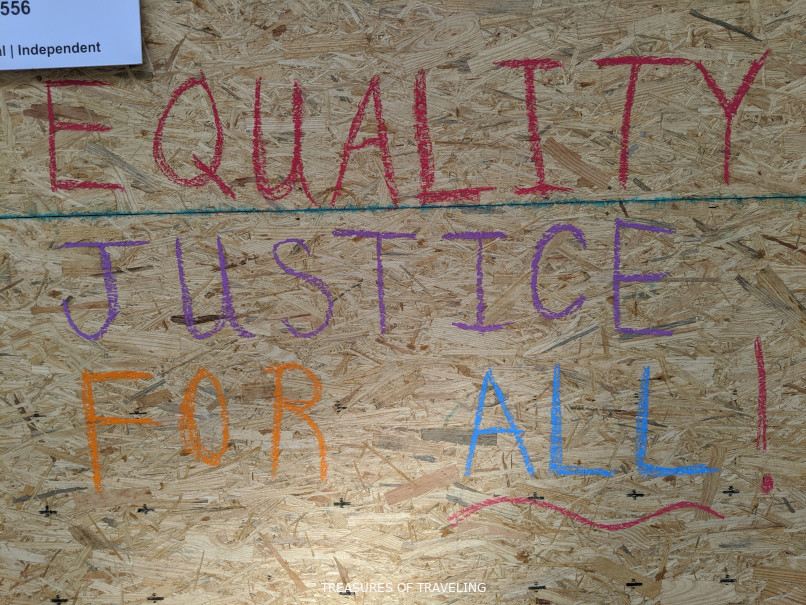 556
l | Independent
EQUALITY
JUSTICE
FOR ALL!
TREASURES OF TRAVELING